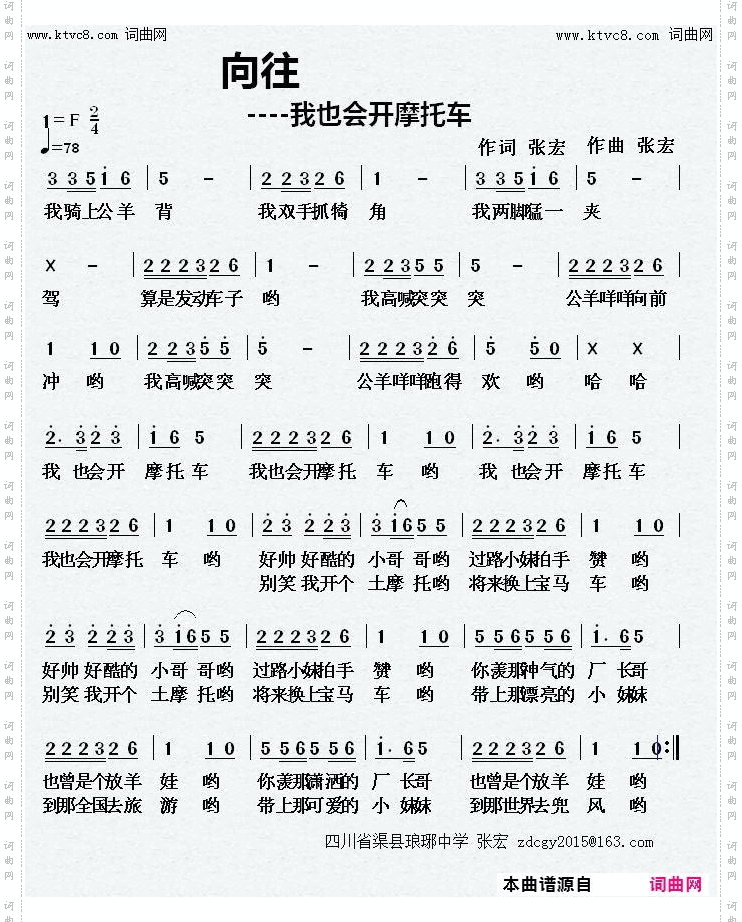 www.ktvc8.com 词曲网
www.ktvc8.com 词曲网
向往
----我也会开摩托车
1=F 2/4
♩=78
作词 张宏 作曲 张宏
3 3 5 i 6 | 5 - | 2 2 3 2 6 | 1 - | 3 3 5 i 6 | 5 - |
我骑上公羊 背 我双手抓犄 角 我两脚猛一 夹
X - | 2 2 2 3 2 6 | 1 - | 2 2 3 5 5 | 5 - | 2 2 2 3 2 6 |
驾 算是发动车子 哟 我高喊突突 突 公羊咩咩向前
1 1 0 | 2 2 3 5 5 | 5 - | 2 2 2 3 2 6 | 5 5 0 | X X |
冲 哟 我高喊突突 突 公羊咩咩跑得 欢 哟 哈 哈
2. 3 2 3 | i 6 5 | 2 2 2 3 2 6 | 1 1 0 | 2. 3 2 3 | i 6 5 |
我 也会开 摩托车 我也会开摩托 车 哟 我 也会开 摩托车
2 2 2 3 2 6 | 1 1 0 | 2 3 2 2 3 | 3 i 6 5 5 | 2 2 2 3 2 6 | 1 1 0 |
我也会开摩托 车 哟 好帅 好酷的 小哥 哥哟 过路小妹拍手 赞 哟
别笑 我开个 土摩 托哟 将来换上宝马 车 哟
2 3 2 2 3 | 3 i 6 5 5 | 2 2 2 3 2 6 | 1 1 0 | 5 5 6 5 5 6 | i. 6 5 |
好帅 好酷的 小哥 哥哟 过路小妹拍手 赞 哟 你羡那神气的 厂 长哥
别笑 我开个 土摩 托哟 将来换上宝马 车 哟 带上那漂亮的 小 妹妹
2 2 2 3 2 6 | 1 1 0 | 5 5 6 5 5 6 | i. 6 5 | 2 2 2 3 2 6 | 1 1 0 :||
也曾是个放羊 娃 哟 你羡那潇洒的 厂 长哥 也曾是个放羊 娃 哟
到那全国去旅 游 哟 带上那可爱的 小 妹妹 到那世界去兜 风 哟
四川省渠县琅琊中学 张宏 zdcgy2015@163.com
本曲谱源自 词曲网